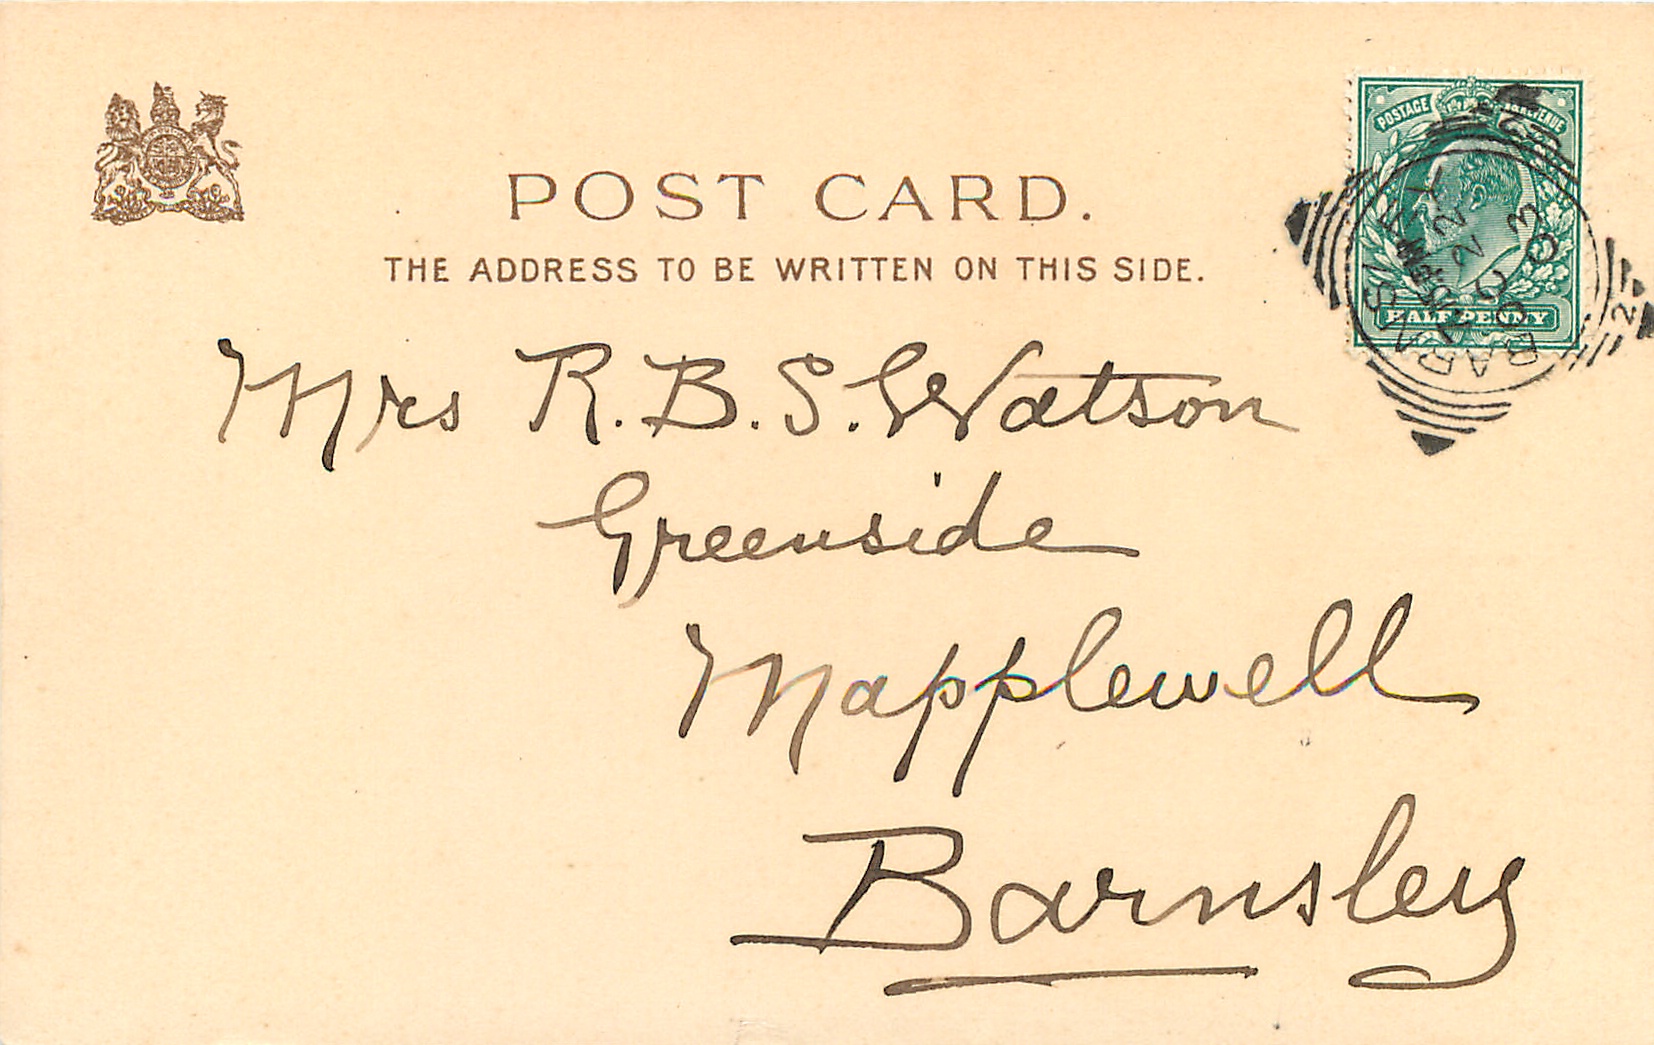 POST CARD.
THE ADDRESS TO BE WRITTEN ON THIS SIDE.
POSTAGE & REVENUE
HALF PENNY
BARNSLEY
Mrs R. B. S. Watson
Greenside
Mapplewell
Barnsley